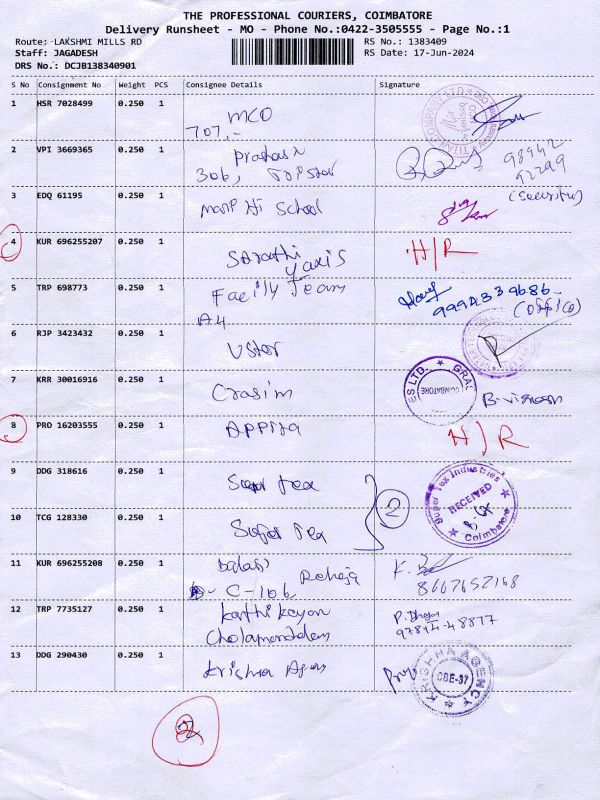 THE PROFESSIONAL COURIERS, COIMBATORE
Delivery Runsheet - MO - Phone No.:0422-3505555 - Page No.:1
Route: LAKSHMI MILLS RD
RS No.: 1383409
Staff: JAGADESH
RS Date: 17-Jun-2024
DRS No.: DCJB138340901
S No Consignment No Weight PCS Consignee Details Signature
1 HSR 7028499 0.250 1 MCO
707,-
2 VPI 3669365 0.250 1
306, 98942
92299
3 EDQ 61195 0.250 1 School (Security)
4 KUR 696255207 0.250 1 Sarathi H/R
5 TRP 698773 0.250 1 Facility Team
A4 (Office)
6 RJP 3423432 0.250 1 Ustor
7 KRR 30016916 0.250 1 Crasim
COIMBATORE
8 PRO 16203555 0.250 1 H/R
9 DDG 318616 0.250 1 Super Tex
2
Super Tex Industries
RECEIVED
Coimbatore
10 TCG 128330 0.250 1 Super Tex
11 KUR 696255208 0.250 1 Balaji
C-106 Raheja
8667652168
12 TRP 7735127 0.250 1 Karthikeyan
Cholamandalam 97874-48877
13 DDG 290430 0.250 1 Krishna Agency
KRISHNA AGENCY
CBE-37
2